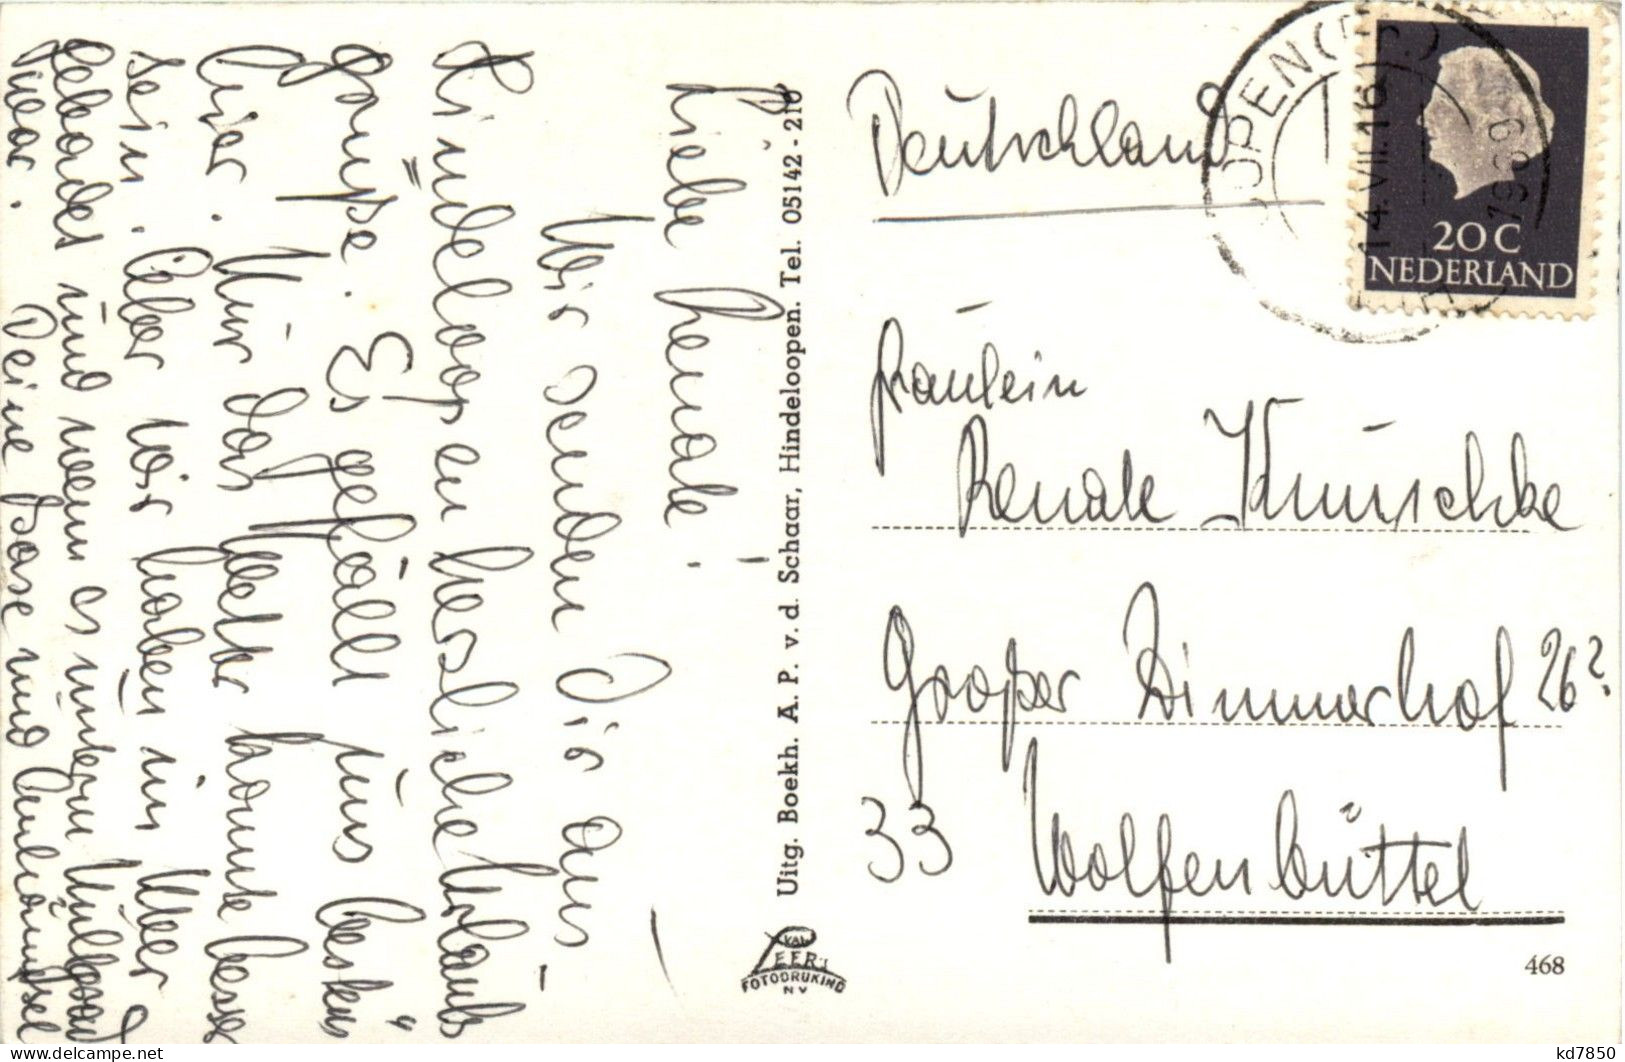 Liebe Renate!
Wir senden Dir aus
Hindeloopen herzliche Urlaubs
grüße. Es gefällt uns bestens
hier. Nur das Wetter könnte besser
sein. Aber wir haben im Meer
gebadet und wenn es unterm
war. Deine Base und
Uitg. Boekh. A. P. v. d. Schaar, Hindeloopen. Tel. 05142 - 216
VAN LEER'S
FOTODRUKIND
N V
Deutschland
14.VII.16
1969
20 C
NEDERLAND
Fräulein
Renate Kunschke
Großer Zimmerhof 26?
33 Wolfenbüttel
468
kd7850